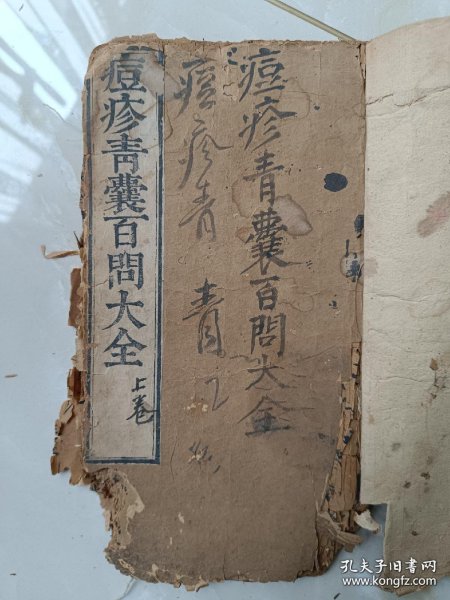 痘疹青囊百問大全
痘疹青
青
痘疹青囊百問大全
上卷
孔夫子旧书网
www.kongfz.com